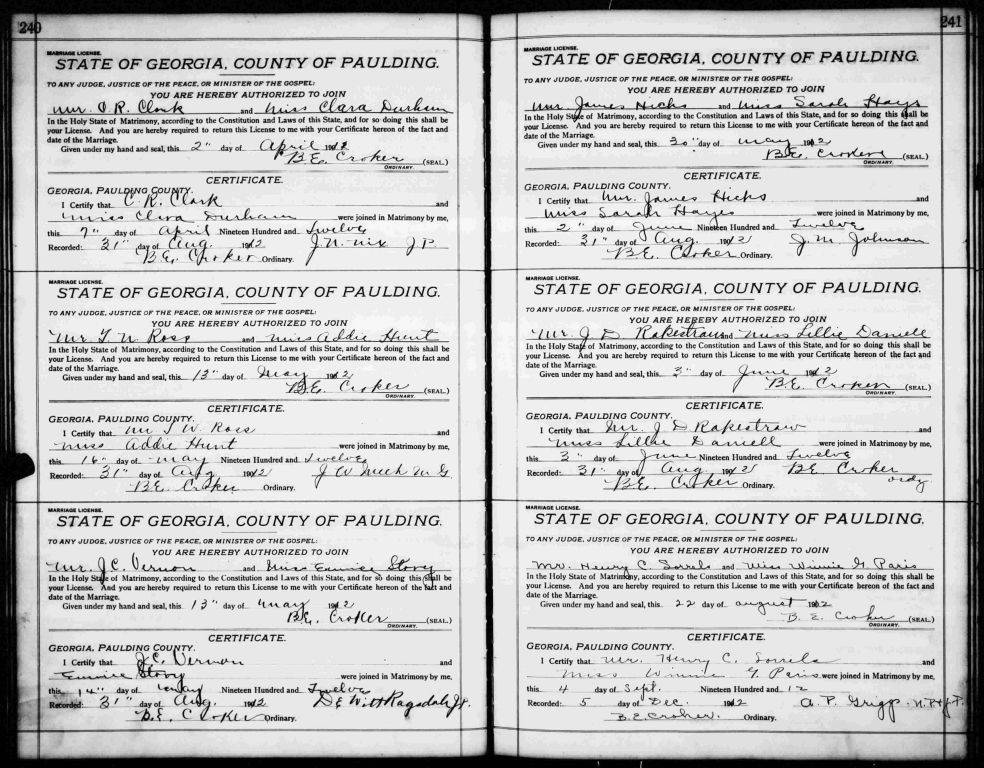 240
MARRIAGE LICENSE.
STATE OF GEORGIA, COUNTY OF PAULDING.
TO ANY JUDGE, JUSTICE OF THE PEACE, OR MINISTER OF THE GOSPEL:
YOU ARE HEREBY AUTHORIZED TO JOIN
Mr. C. R. Clark and Miss Clara Durham
In the Holy State of Matrimony, according to the Constitution and Laws of this State, and for so doing this shall be
your License. And you are hereby required to return this License to me with your Certificate hereon of the fact and
date of the Marriage.
Given under my hand and seal, this 2" day of April 1912
B.E. Croker (SEAL.)
ORDINARY.
CERTIFICATE.
GEORGIA, PAULDING COUNTY.
I Certify that C. R. Clark and
Miss Clara Durham were joined in Matrimony by me,
this 7" day of April Nineteen Hundred and Twelve
Recorded: 31" day of Aug. 1912 J. N. Nix J.P.
B.E. Croker Ordinary.
MARRIAGE LICENSE.
STATE OF GEORGIA, COUNTY OF PAULDING.
TO ANY JUDGE, JUSTICE OF THE PEACE, OR MINISTER OF THE GOSPEL:
YOU ARE HEREBY AUTHORIZED TO JOIN
Mr. T. W. Ross and Miss Addie Hunt
In the Holy State of Matrimony, according to the Constitution and Laws of this State, and for so doing this shall be
your License. And you are hereby required to return this License to me with your Certificate hereon of the fact and
date of the Marriage.
Given under my hand and seal, this 13" day of May 1912
B.E. Croker (SEAL.)
ORDINARY.
CERTIFICATE.
GEORGIA, PAULDING COUNTY.
I Certify that Mr T W Ross and
Miss Addie Hunt were joined in Matrimony by me,
this 16" day of May Nineteen Hundred and Twelve
Recorded: 31" day of Aug 1912 J W M.G.
B.E. Croker Ordinary.
MARRIAGE LICENSE.
STATE OF GEORGIA, COUNTY OF PAULDING.
TO ANY JUDGE, JUSTICE OF THE PEACE, OR MINISTER OF THE GOSPEL:
YOU ARE HEREBY AUTHORIZED TO JOIN
Mr. J.C. Vernon and Miss Eunice Story
In the Holy State of Matrimony, according to the Constitution and Laws of this State, and for so doing this shall be
your License. And you are hereby required to return this License to me with your Certificate hereon of the fact and
date of the Marriage.
Given under my hand and seal, this 13" day of May 1912
B.E. Croker (SEAL.)
ORDINARY.
CERTIFICATE.
GEORGIA, PAULDING COUNTY.
I Certify that J.C. Vernon and
Eunice Story were joined in Matrimony by me,
this 14" day of May Nineteen Hundred and Twelve
Recorded: 31" day of Aug. 1912 DeWitt Ragsdale J.P.
B.E. Croker Ordinary.
241
MARRIAGE LICENSE.
STATE OF GEORGIA, COUNTY OF PAULDING.
TO ANY JUDGE, JUSTICE OF THE PEACE, OR MINISTER OF THE GOSPEL:
YOU ARE HEREBY AUTHORIZED TO JOIN
Mr. James Hicks and Miss Sarah Hays
In the Holy State of Matrimony, according to the Constitution and Laws of this State, and for so doing this shall be
your License. And you are hereby required to return this License to me with your Certificate hereon of the fact and
date of the Marriage.
Given under my hand and seal, this 30" day of May 1912
B.E. Croker (SEAL.)
ORDINARY.
CERTIFICATE.
GEORGIA, PAULDING COUNTY.
I Certify that Mr. James Hicks and
Miss Sarah Hayes were joined in Matrimony by me,
this 2" day of June Nineteen Hundred and Twelve
Recorded: 31" day of Aug. 1912 J. M. Johnson
B.E. Croker Ordinary.
MARRIAGE LICENSE.
STATE OF GEORGIA, COUNTY OF PAULDING.
TO ANY JUDGE, JUSTICE OF THE PEACE, OR MINISTER OF THE GOSPEL:
YOU ARE HEREBY AUTHORIZED TO JOIN
Mr. J D Rakestraw and Miss Lillie Daniell
In the Holy State of Matrimony, according to the Constitution and Laws of this State, and for so doing this shall be
your License. And you are hereby required to return this License to me with your Certificate hereon of the fact and
date of the Marriage.
Given under my hand and seal, this 3" day of June 1912
B.E. Croker (SEAL.)
ORDINARY.
CERTIFICATE.
GEORGIA, PAULDING COUNTY.
I Certify that Mr. J D Rakestraw and
Miss Lillie Daniell were joined in Matrimony by me,
this 3" day of June Nineteen Hundred and Twelve
Recorded: 31" day of Aug 1912 B.E. Croker
B.E. Croker Ordinary. ordy
MARRIAGE LICENSE.
STATE OF GEORGIA, COUNTY OF PAULDING.
TO ANY JUDGE, JUSTICE OF THE PEACE, OR MINISTER OF THE GOSPEL:
YOU ARE HEREBY AUTHORIZED TO JOIN
Mr. Henry C. Sorrels and Miss Winnie G Paris
In the Holy State of Matrimony, according to the Constitution and Laws of this State, and for so doing this shall be
your License. And you are hereby required to return this License to me with your Certificate hereon of the fact and
date of the Marriage.
Given under my hand and seal, this 22 day of August 1912
B. E. Croker (SEAL.)
ORDINARY.
CERTIFICATE.
GEORGIA, PAULDING COUNTY.
I Certify that Mr. Henry C. Sorrels and
Miss Winnie G. Paris were joined in Matrimony by me,
this 4 day of Sept. Nineteen Hundred and 12
Recorded: 5 day of Dec. 1912 A. P. Grigg N.P. & J.P.
B.E. Croker. Ordinary.